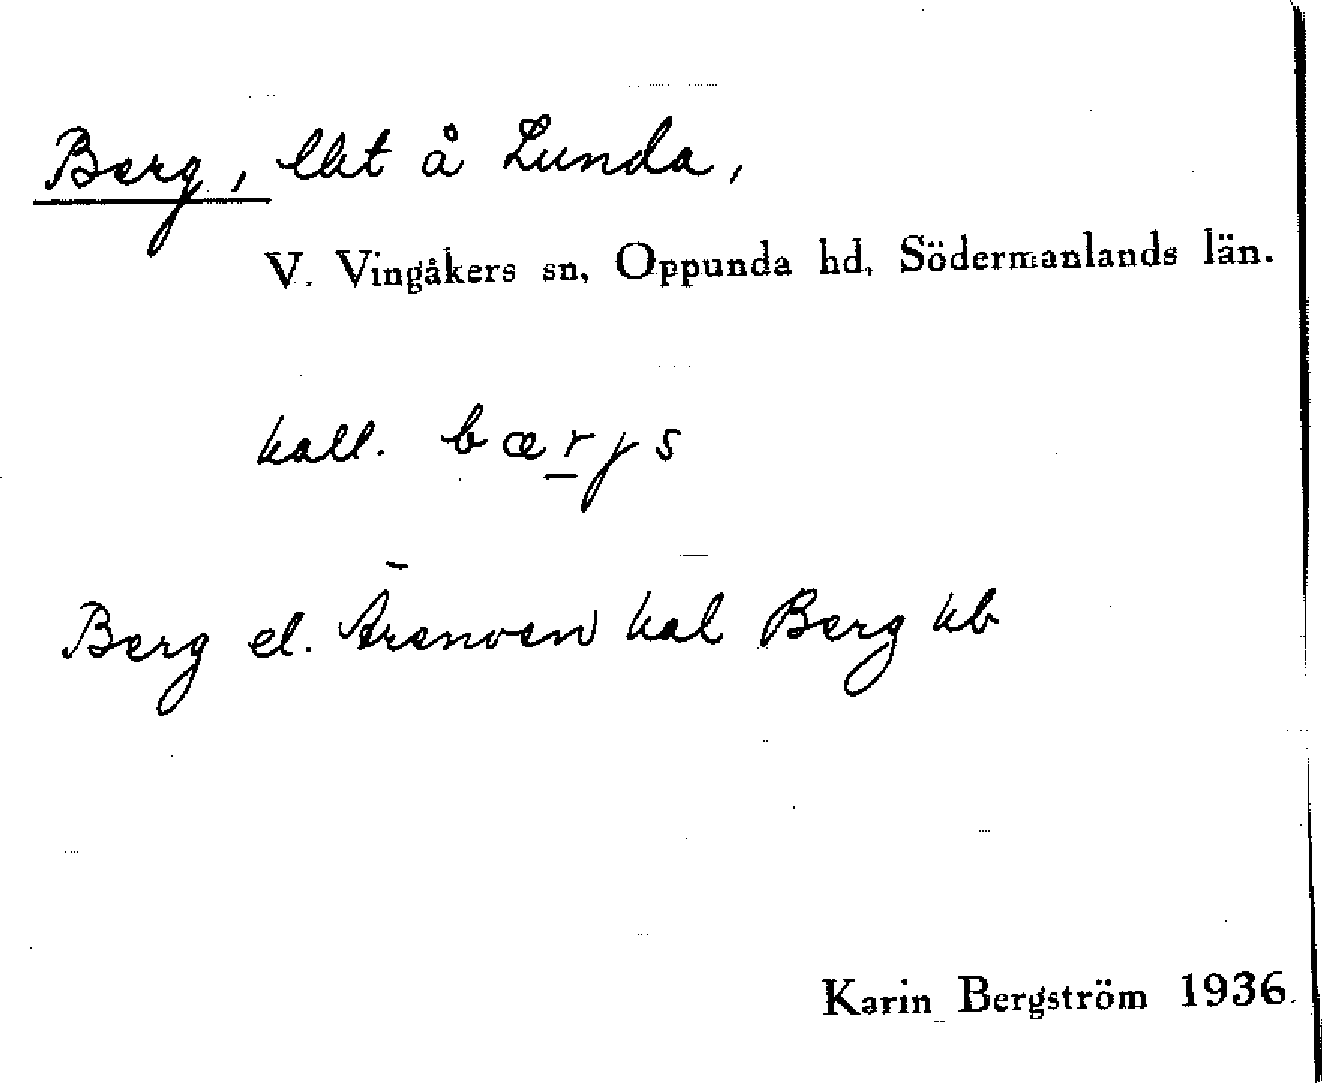 Berg, lht å Lunda,
V. Vingåkers sn, Oppunda hd, Södermanlands län.
kall. bærjs
Berg el. kal Berg kb
Karin Bergström 1936.